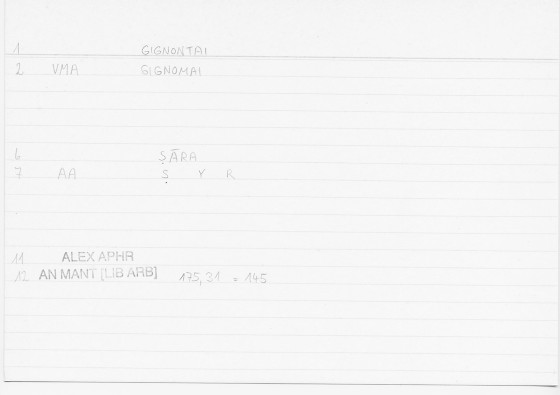 1 GIGNONTAI
2 VMA GIGNOMAI
6 ṢĀRA
7 AA Ṣ Y R
11 ALEX APHR
12 AN MANT [LIB ARB] 175,31 = 145